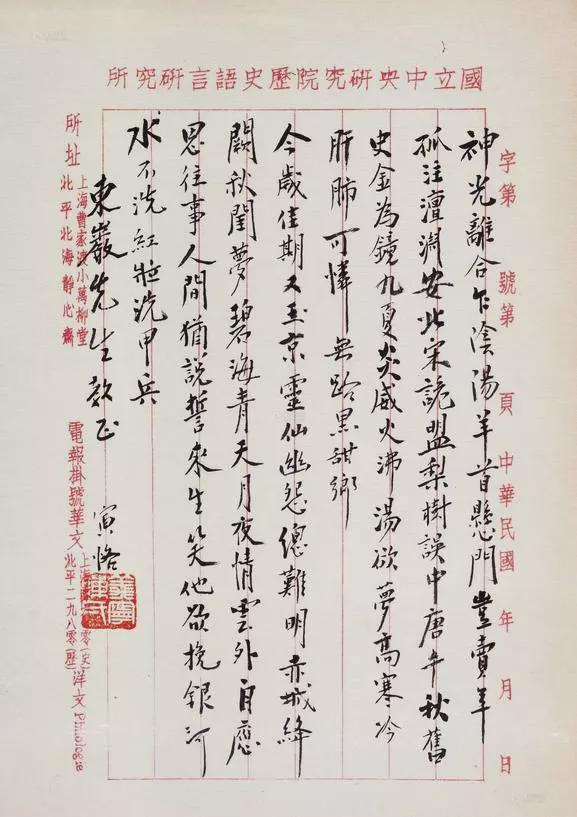 國立中央研究院歷史語言研究所
字第 號第 頁 中華民國 年 月 日
神光離合乍陰陽羊首懸門豈賣羊
孤注澶淵安北宋詭盟梨樹誤中唐千秋舊
史金為鏡九夏炎威火沸湯欲夢高寒冷
肝肺可憐無路黑甜鄉
今歲佳期又玉京靈仙幽怨總難明赤城絳
闕秋閨夢碧海青天月夜情雲外自應
思往事人間猶說誓來生笑他欲挽銀河
水不洗紅妝洗甲兵
東巖先生教正 寅恪
所址
上海曹家渡小萬柳堂
北平北海靜心齋
電報掛號華文
上海
北平二九八零(歷)
洋文